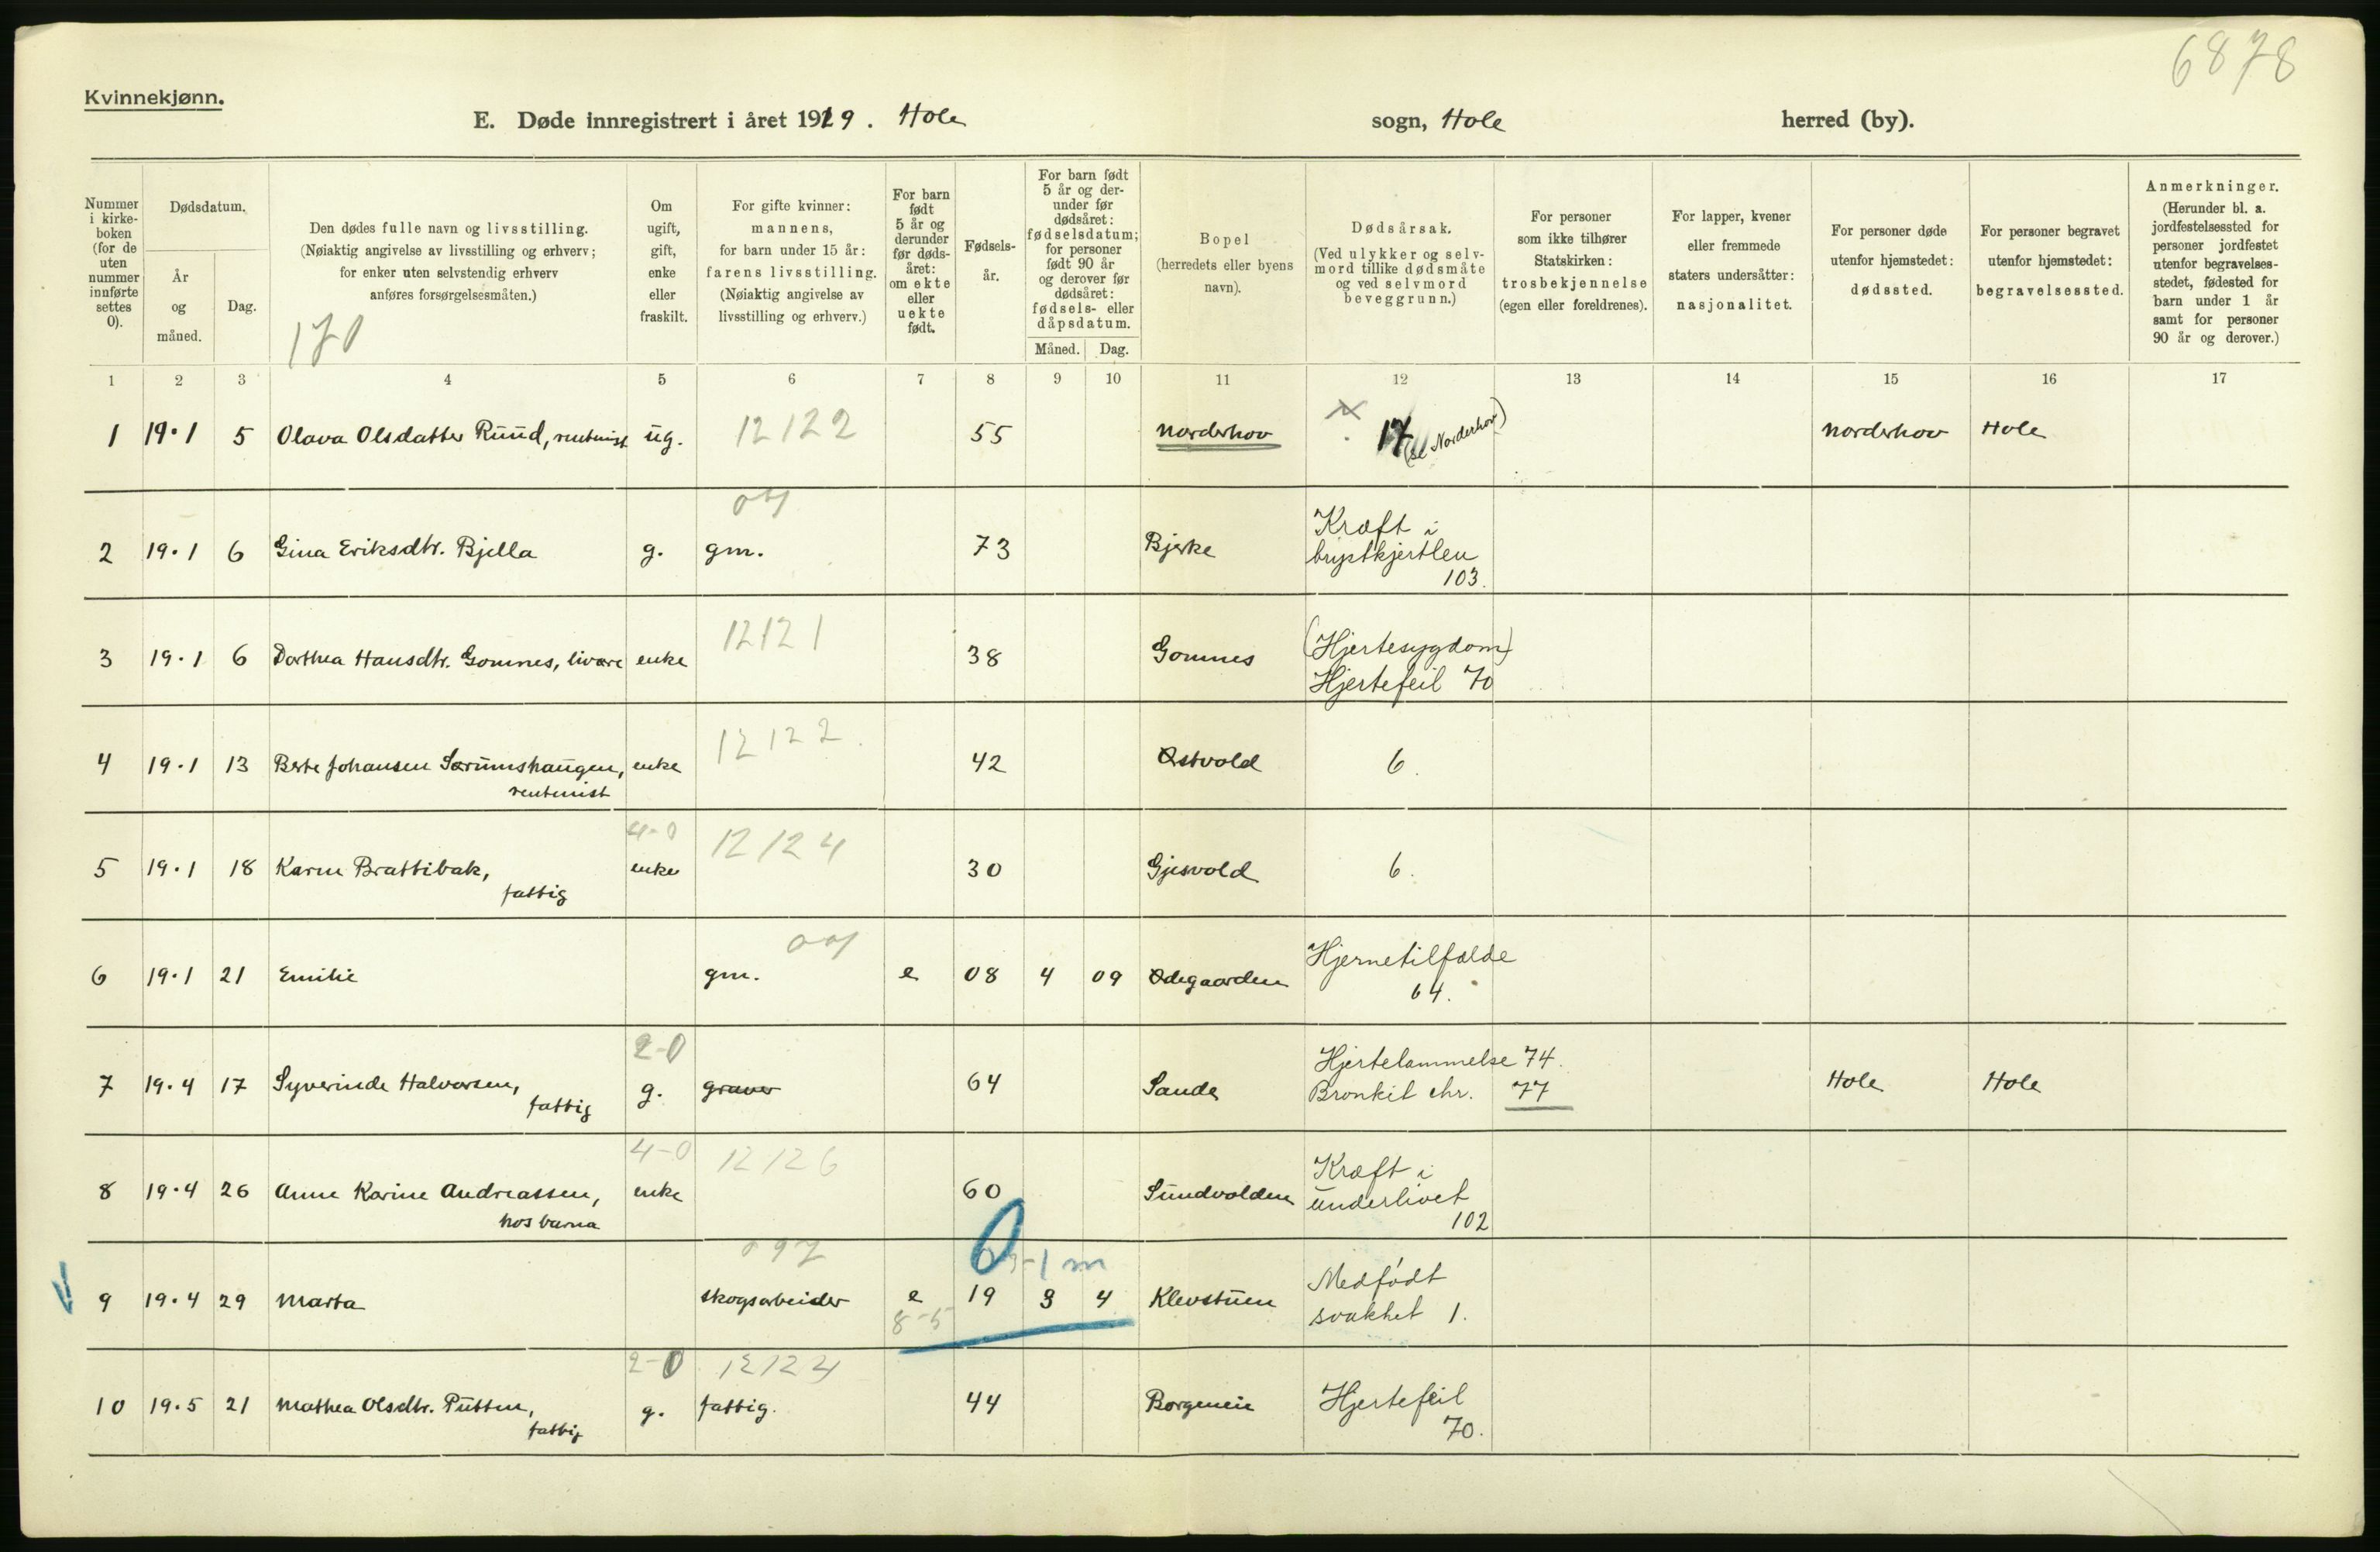 6878
Kvinnekjønn.
E. Døde innregistrert i året 1919. Hole sogn, Hole herred (by).
Nummer i kirke-boken (for de uten nummer innførte settes 0).
Dødsdatum.
År og måned.
Dag.
Den dødes fulle navn og livsstilling.
(Nøiaktig angivelse av livsstilling og erhverv;
for enker uten selvstendig erhverv
anføres forsørgelsesmåten.)
170
Om ugift, gift, enke eller fraskilt.
For gifte kvinner:
mannens,
for barn under 15 år:
farens livsstilling.
(Nøiaktig angivelse av
livsstilling og erhverv.)
For barn født 5 år og derunder før døds-året: om ekte eller uekte født.
Fødsels-år.
For barn født 5 år og der-under før dødsåret: fødselsdatum; for personer født 90 år og derover før dødsåret: fødsels- eller dåpsdatum.
Måned. Dag.
Bopel
(herredets eller byens
navn).
Dødsårsak.
(Ved ulykker og selv-
mord tillike dødsmåte
og ved selvmord
beveggrunn.)
For personer
som ikke tilhører
Statskirken:
trosbekjennelse
(egen eller foreldrenes).
For lapper, kvener
eller fremmede
staters undersåtter:
nasjonalitet.
For personer døde
utenfor hjemstedet:
dødssted.
For personer begravet
utenfor hjemstedet:
begravelsessted.
Anmerkninger.
(Herunder bl. a.
jordfestelsessted for
personer jordfestet
utenfor begravelses-
stedet, fødested for
barn under 1 år
samt for personer
90 år og derover.)
1 2 3 4 5 6 7 8 9 10 11 12 13 14 15 16 17
1 19.1 5 Olava Olsdatter Ruud, rentenist ug. 12122 55 Norderhov 17 (se Norderhov) Norderhov Hole
2 19.1 6 Gina Eriksdtr. Bjella g. gm. 73 Bjerke Kræft i
brystkjertlen
103.
3 19.1 6 Dorthea Hansdtr. Gomnes, livøre enke 12121 38 Gomnes (Hjertesygdom)
Hjertefeil 70
4 19.1 13 Berte Johansen Sørumshaugen, enke 12122. 42 Østvold 6.
rentenist
4-0
5 19.1 18 Karen Brattibak, enke 12124 30 Gjesvold 6.
fattig
6 19.1 21 Emilie gm. e 08 4 09 Ødegaarden Hjernetilfælde
64.
2-0
7 19.4 17 Syverinde Halvorsen, g. graver 64 Sande Hjertelammelse 74. Hole Hole
fattig Bronkit chr. 77
4-0 12126
8 19.4 26 Anne Karine Andreassen, enke 60 Sundvolden Kræft i
hos barna underlivet
102
097
0 -1 m
9 19.4 29 Marta skogsarbeider e 19 3 4 Klevstuen Medfødt
8-5 svakhet 1.
2-0 12124
10 19.5 21 Mathea Olsdtr. Putten, g. fattig. 44 Borgeneie Hjertefeil
fattig 70.